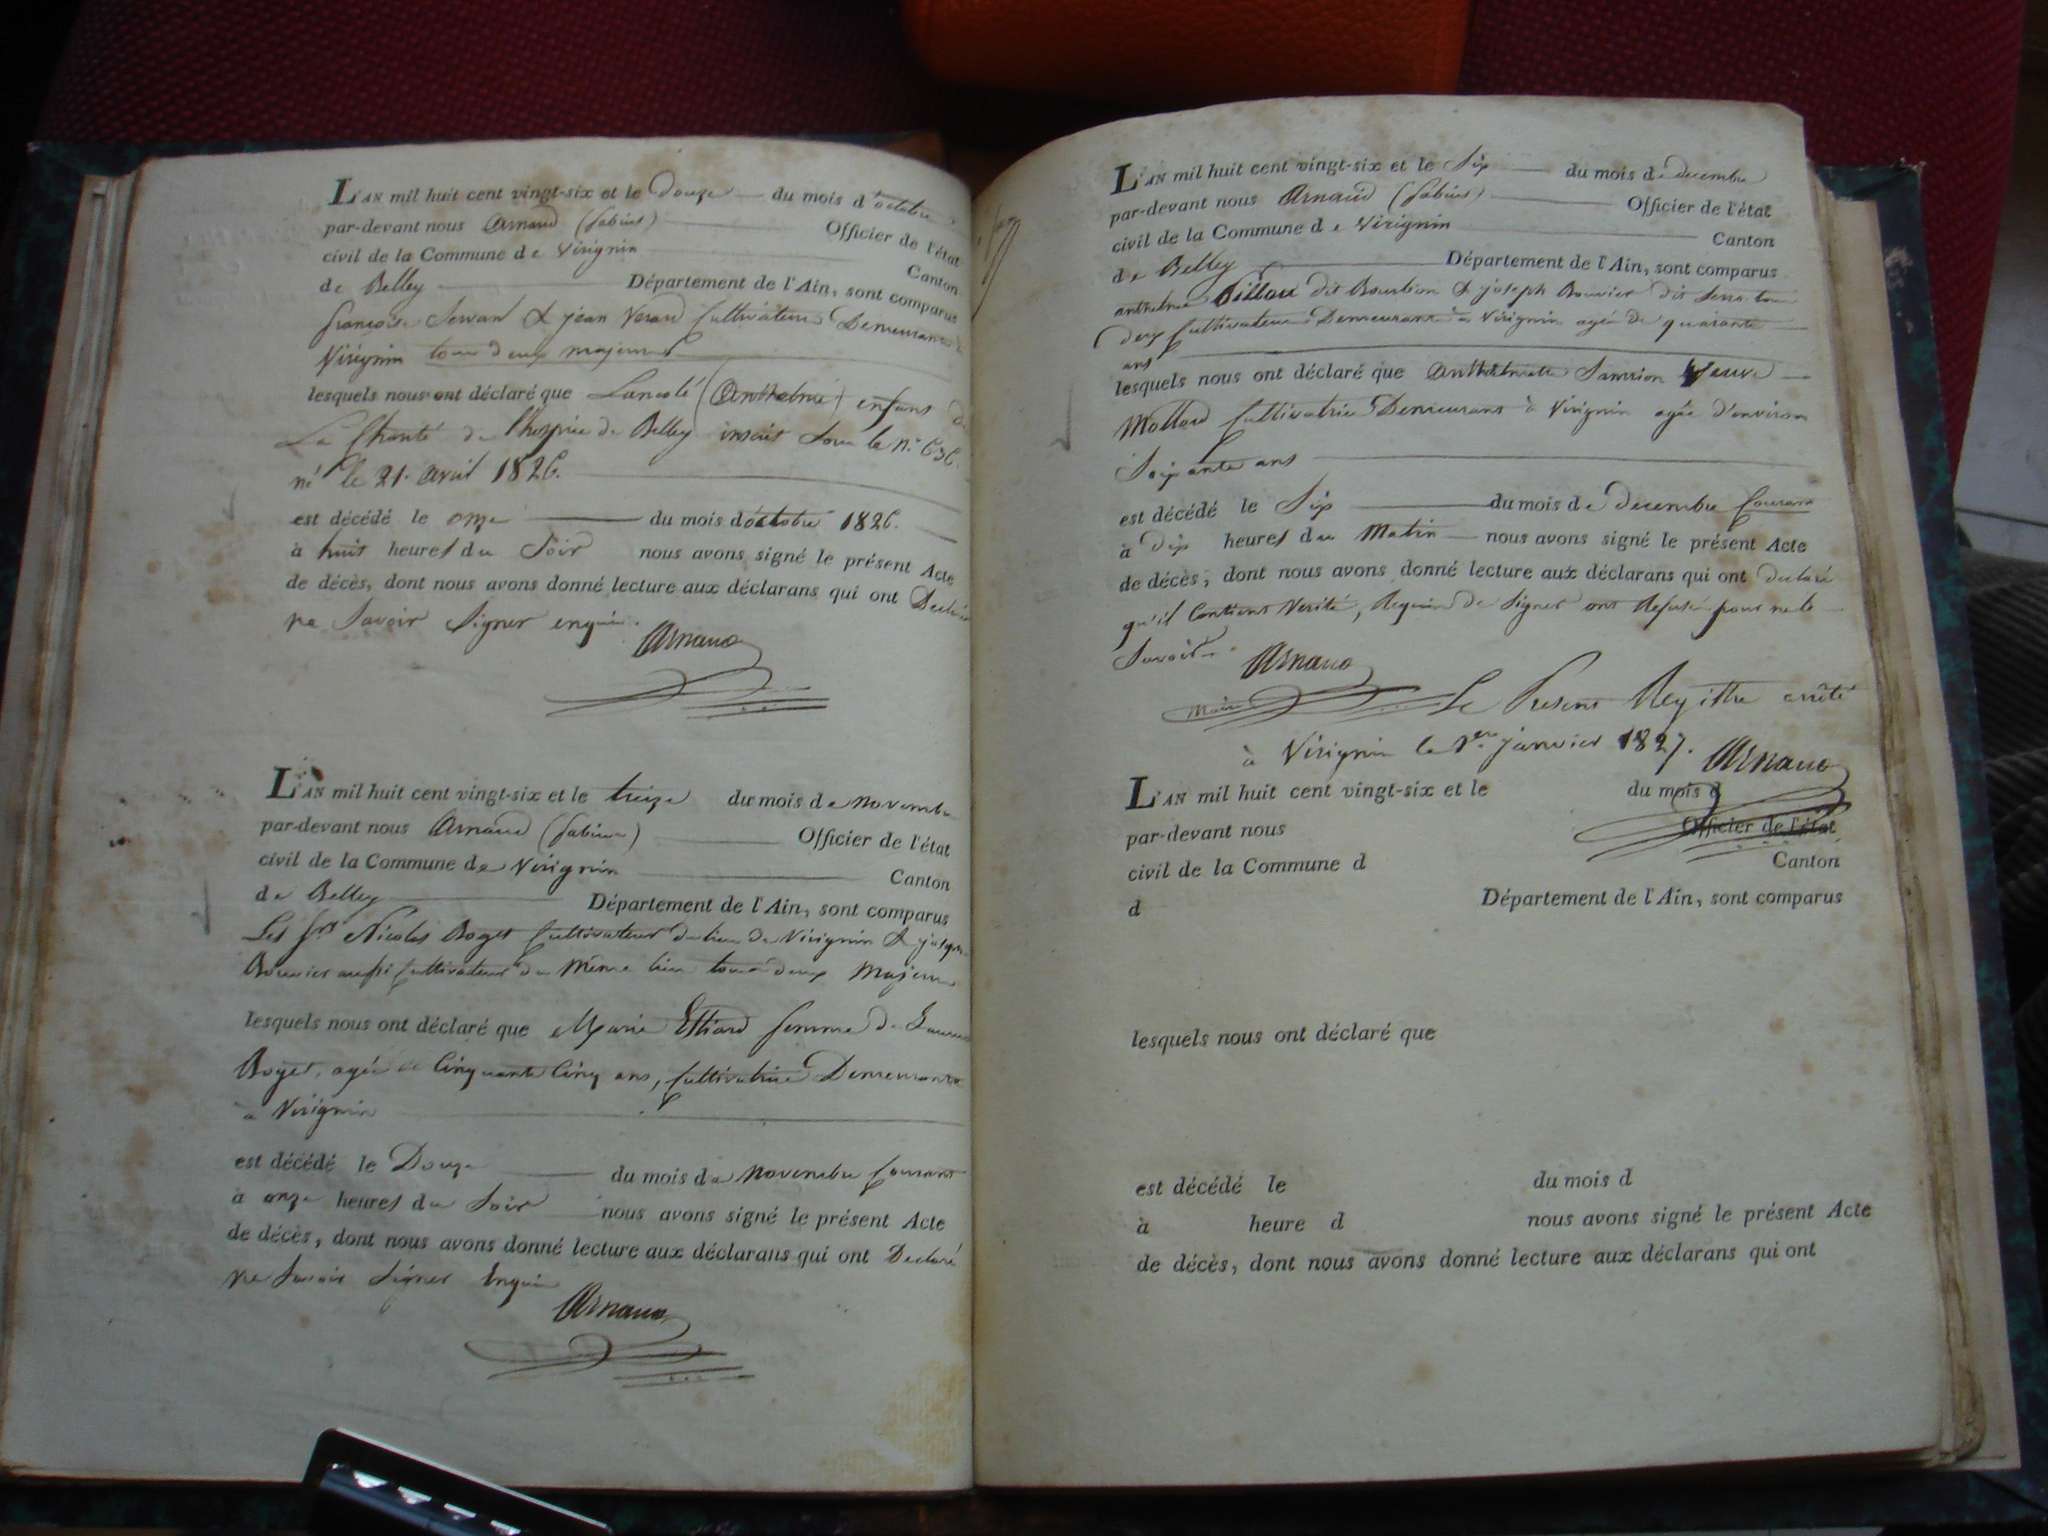 L'AN mil huit cent vingt-six et le douze du mois d'octobre
par-devant nous Arnaud (fabien) Officier de l'état
civil de la Commune de Virignin Canton
de Belley Département de l'Ain, sont comparus
françois Servan & jean Veraud Cultivateurs Demeurants
Virignin tous deux majeurs
lesquels nous ont déclaré que (Anthelme) enfant de
La Charité de l'hospice de Belley inscrit Sous le N.° 636.
né le 21. avril 1826.
est décédé le onze du mois d'octobre 1826.
à huit heures du Soir nous avons signé le présent Acte
de décès, dont nous avons donné lecture aux déclarans qui ont Déclaré
ne Savoir Signer enquis.
Arnaud
L'AN mil huit cent vingt-six et le treize du mois de novembre
par-devant nous Arnaud (fabien) Officier de l'état
civil de la Commune de Virignin Canton
de Belley Département de l'Ain, sont comparus
Les Srs Nicolas Boget Cultivateur du lieu de Virignin & joseph
Bouvier aussi Cultivateur du Même lieu tous deux Majeurs
lesquels nous ont déclaré que Marie femme de
Boget, agée de Cinquante Cinq ans, Cultivatrice Demeurante
à Virignin
est décédé le Douze du mois de novembre Courant
à onze heures du Soir nous avons signé le présent Acte
de décès, dont nous avons donné lecture aux déclarans qui ont Déclaré
ne Savoir Signer Enquis
Arnaud
L'AN mil huit cent vingt-six et le Six du mois de decembre
par-devant nous Arnaud (fabien) Officier de l'état
civil de la Commune de Virignin Canton
de Belley Département de l'Ain, sont comparus
anthelme Billou dit Bourbon & joseph Bouvier dit
deux Cultivateurs Demeurants à Virignin agés de quarante
ans
lesquels nous ont déclaré que Anthelmette Samion Veuve
Mollard Cultivatrice Demeurant à Virignin agée d'environ
Soixante ans
est décédé le Six du mois de decembre Courant
à dix heures du Matin nous avons signé le présent Acte
de décès, dont nous avons donné lecture aux déclarans qui ont declaré
qu'il Contient Verité, Requis de Signer ont Refusé pour ne le
Savoir.
Arnaud
Maire
Le Present Registre arrêté
à Virignin le 1er janvier 1827.
Arnaud
L'AN mil huit cent vingt-six et le du mois d
par-devant nous Officier de l'état
civil de la Commune d Canton
d Département de l'Ain, sont comparus
lesquels nous ont déclaré que
est décédé le du mois d
à heure d nous avons signé le présent Acte
de décès, dont nous avons donné lecture aux déclarans qui ont